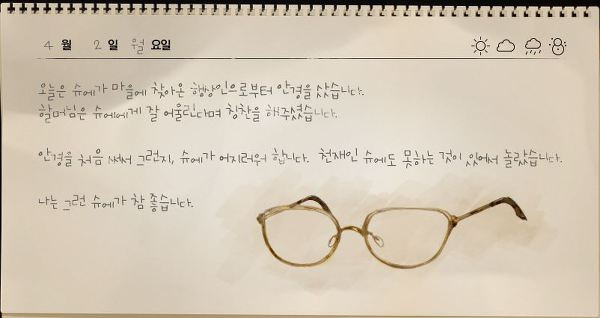 4 월 2 일 월 요일
오늘은 슈에가 마을에 찾아온 행상인으로부터 안경을 샀습니다.
할머님은 슈에에게 잘 어울린다며 칭찬을 해주셨습니다.
안경을 처음 써서 그런지, 슈에가 어지러워 합니다. 천재인 슈에도 못하는 것이 있어서 놀랐습니다.
나는 그런 슈에가 참 좋습니다.